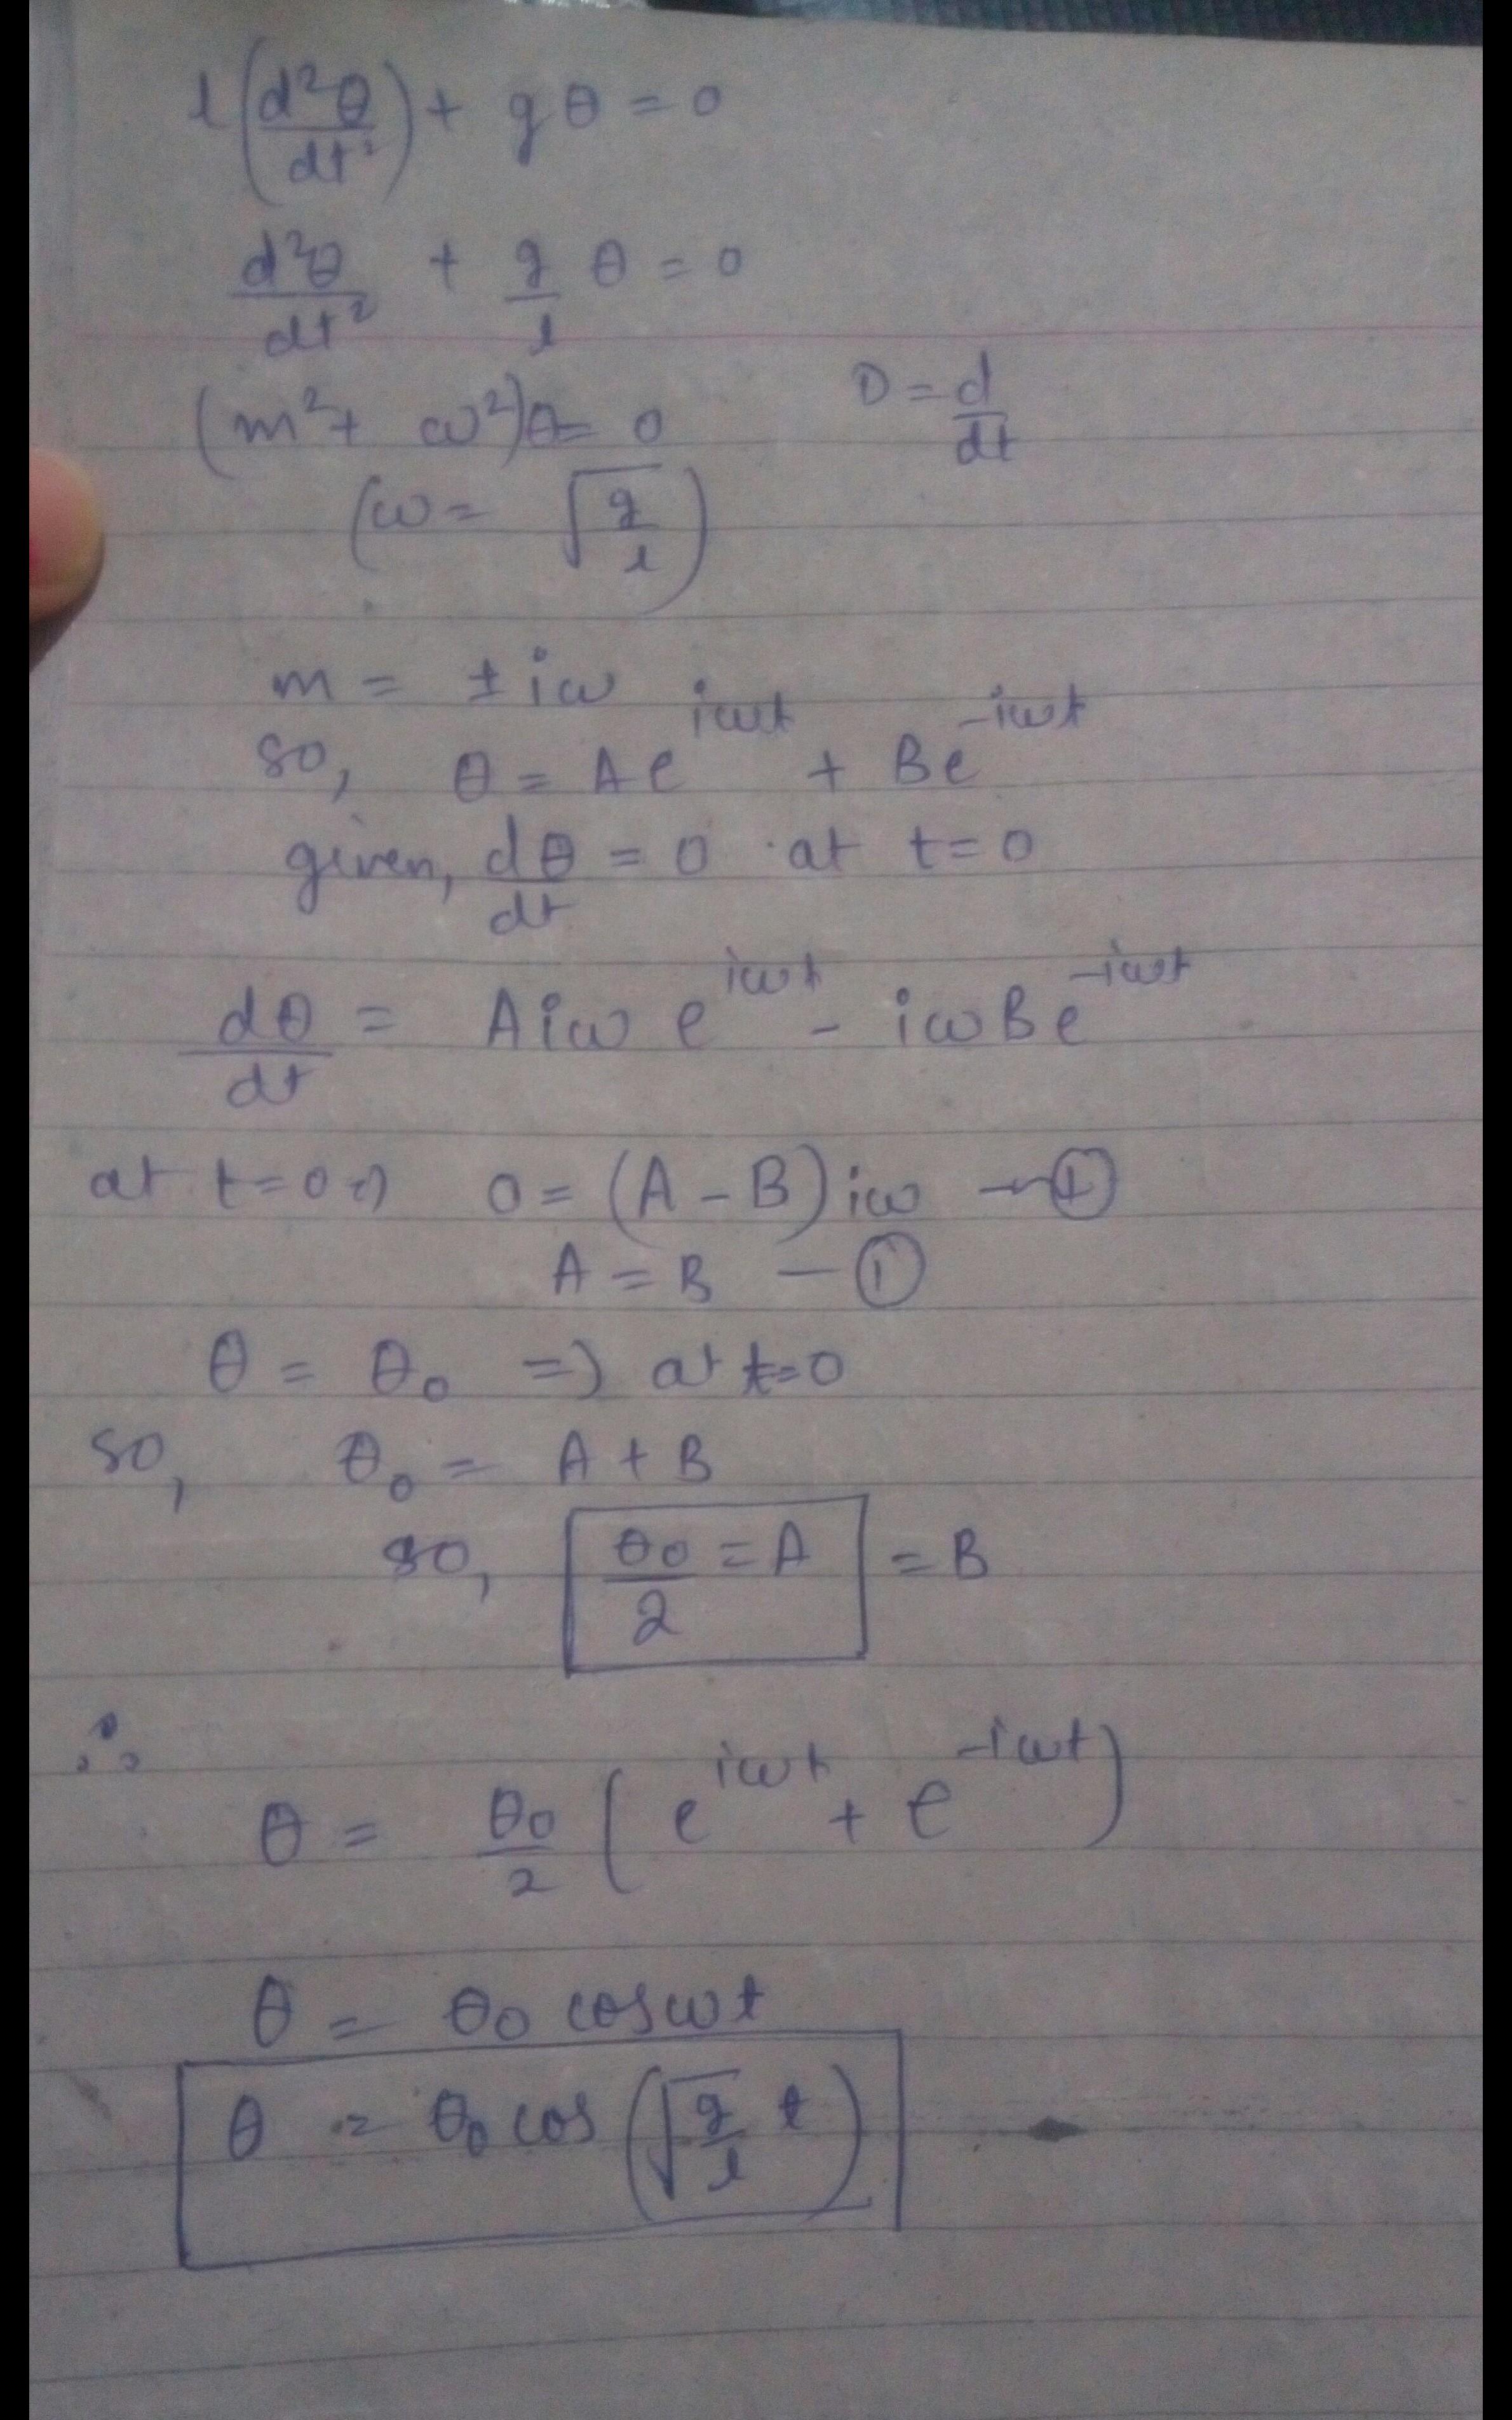 l(d²θ/dt²) + gθ = 0
d²θ/dt² + g/l θ = 0
(m² + ω²)θ = 0 D = d/dt
(ω = √(g/l))
m = ± iω
so, θ = Ae^(iωt) + Be^(-iωt)
given, dθ/dt = 0 at t = 0
dθ/dt = Aiω e^(iωt) - iωBe^(-iωt)
at t=0 ⇒ 0 = (A - B)iω — ①
A = B — ①
θ = θ₀ ⇒ at t=0
so, θ₀ = A + B
so, θ₀/2 = A = B
∴
θ = θ₀/2 (e^(iωt) + e^(-iωt))
θ = θ₀ cosωt
θ = θ₀ cos(√(g/l) t)